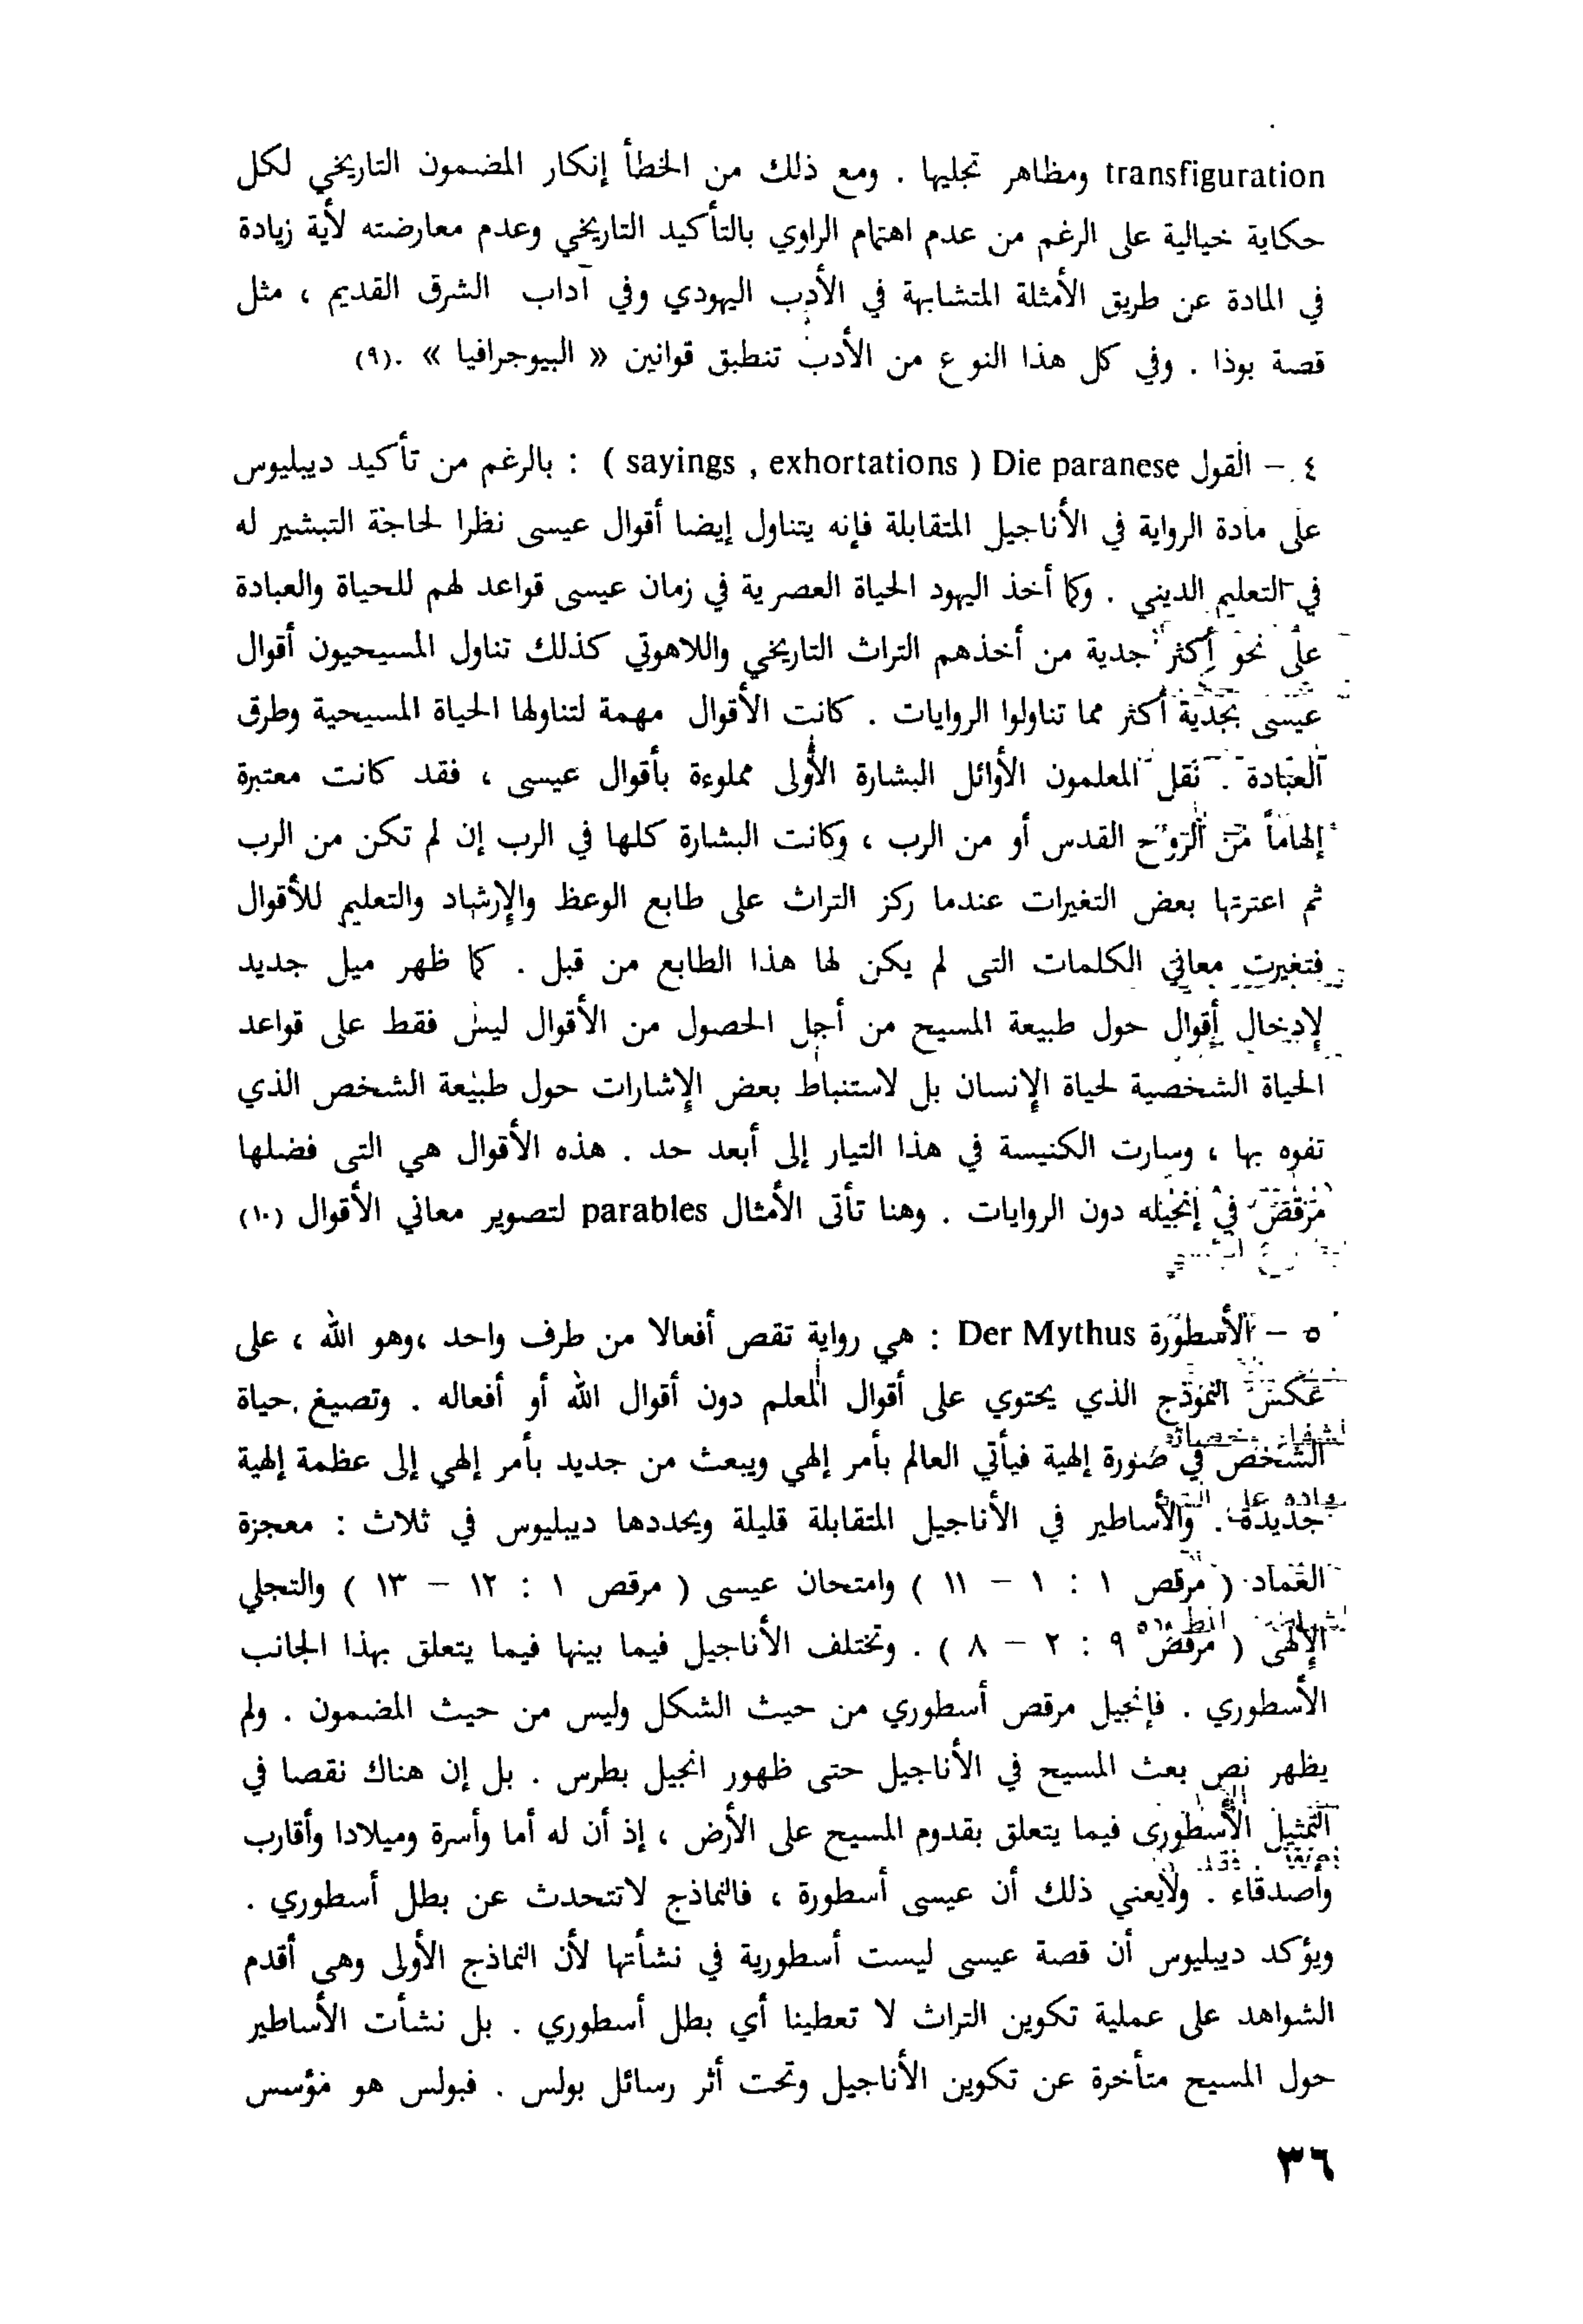 transfiguration ومظاهر تجليها . ومع ذلك من الخطأ إنكار المضمون التاريخي لكل
حكاية خيالية على الرغم من عدم اهتمام الراوي بالتأكيد التاريخي وعدم معارضته لأية زيادة
في المادة عن طريق الأمثلة المتشابهة في الأدب اليهودي وفي آداب الشرق القديم ، مثل
قصة بوذا . وفي كل هذا النوع من الأدب تنطبق قوانين « البيوجرافيا » .(٩)
٤ – القول Die paranese ( sayings , exhortations ) : بالرغم من تأكيد ديبليوس
على مادة الرواية في الأناجيل المتقابلة فإنه يتناول إيضا أقوال عيسى نظرا لحاجة التبشير له
في التعليم الديني . وكما أخذ اليهود الحياة العصرية في زمان عيسى قواعد لهم للحياة والعبادة
على نحو أكثر جدية من أخذهم التراث التاريخي واللاهوتي كذلك تناول المسيحيون أقوال
عيسى بجدية أكثر مما تناولوا الروايات . كانت الأقوال مهمة لتناولها الحياة المسيحية وطرق
العبادة . نقل المعلمون الأوائل البشارة الأولى مملوءة بأقوال عيسى ، فقد كانت معتبرة
إلهاماً من الروح القدس أو من الرب ، وكانت البشارة كلها في الرب إن لم تكن من الرب
ثم اعترتها بعض التغيرات عندما ركز التراث على طابع الوعظ والإرشاد والتعليم للأقوال
فتغيرت معاني الكلمات التى لم يكن لها هذا الطابع من قبل . كما ظهر ميل جديد
لإدخال أقوال حول طبيعة المسيح من أجل الحصول من الأقوال ليس فقط على قواعد
الحياة الشخصية لحياة الإنسان بل لاستنباط بعض الإشارات حول طبيعة الشخص الذي
تفوه بها ، وسارت الكنيسة في هذا التيار إلى أبعد حد . هذه الأقوال هي التى فضلها
مرقص في إنجيله دون الروايات . وهنا تأتى الأمثال parables لتصوير معاني الأقوال (١٠)
٥ – الأسطورة Der Mythus : هي رواية تقص أفعالا من طرف واحد ،وهو الله ، على
عكس النموذج الذي يحتوي على أقوال المعلم دون أقوال الله أو أفعاله . وتصيغ حياة
الشخص في صورة إلهية فيأتي العالم بأمر إلهي ويبعث من جديد بأمر إلهي إلى عظمة إلهية
جديدة . والأساطير في الأناجيل المتقابلة قليلة ويحددها ديبليوس في ثلاث : معجزة
العماد ( مرقص ١ : ١ – ١١ ) وامتحان عيسى ( مرقص ١ : ١٢ – ١٣ ) والتجلي
الإلهى ( مرقص ٩ : ٢ – ٨ ) . وتختلف الأناجيل فيما بينها فيما يتعلق بهذا الجانب
الأسطوري . فإنجيل مرقص أسطوري من حيث الشكل وليس من حيث المضمون . ولم
يظهر نص بعث المسيح في الأناجيل حتى ظهور انجيل بطرس . بل إن هناك نقصا في
التمثيل الأسطورى فيما يتعلق بقدوم المسيح على الأرض ، إذ أن له أما وأسرة وميلادا وأقارب
وأصدقاء . ولايعني ذلك أن عيسى أسطورة ، فالنماذج لاتتحدث عن بطل أسطوري .
ويؤكد ديبليوس أن قصة عيسى ليست أسطورية في نشأتها لأن النماذج الأولى وهى أقدم
الشواهد على عملية تكوين التراث لا تعطينا أي بطل أسطوري . بل نشأت الأساطير
حول المسيح متأخرة عن تكوين الأناجيل وتحت أثر رسائل بولس . فبولس هو مؤسس
٣٦